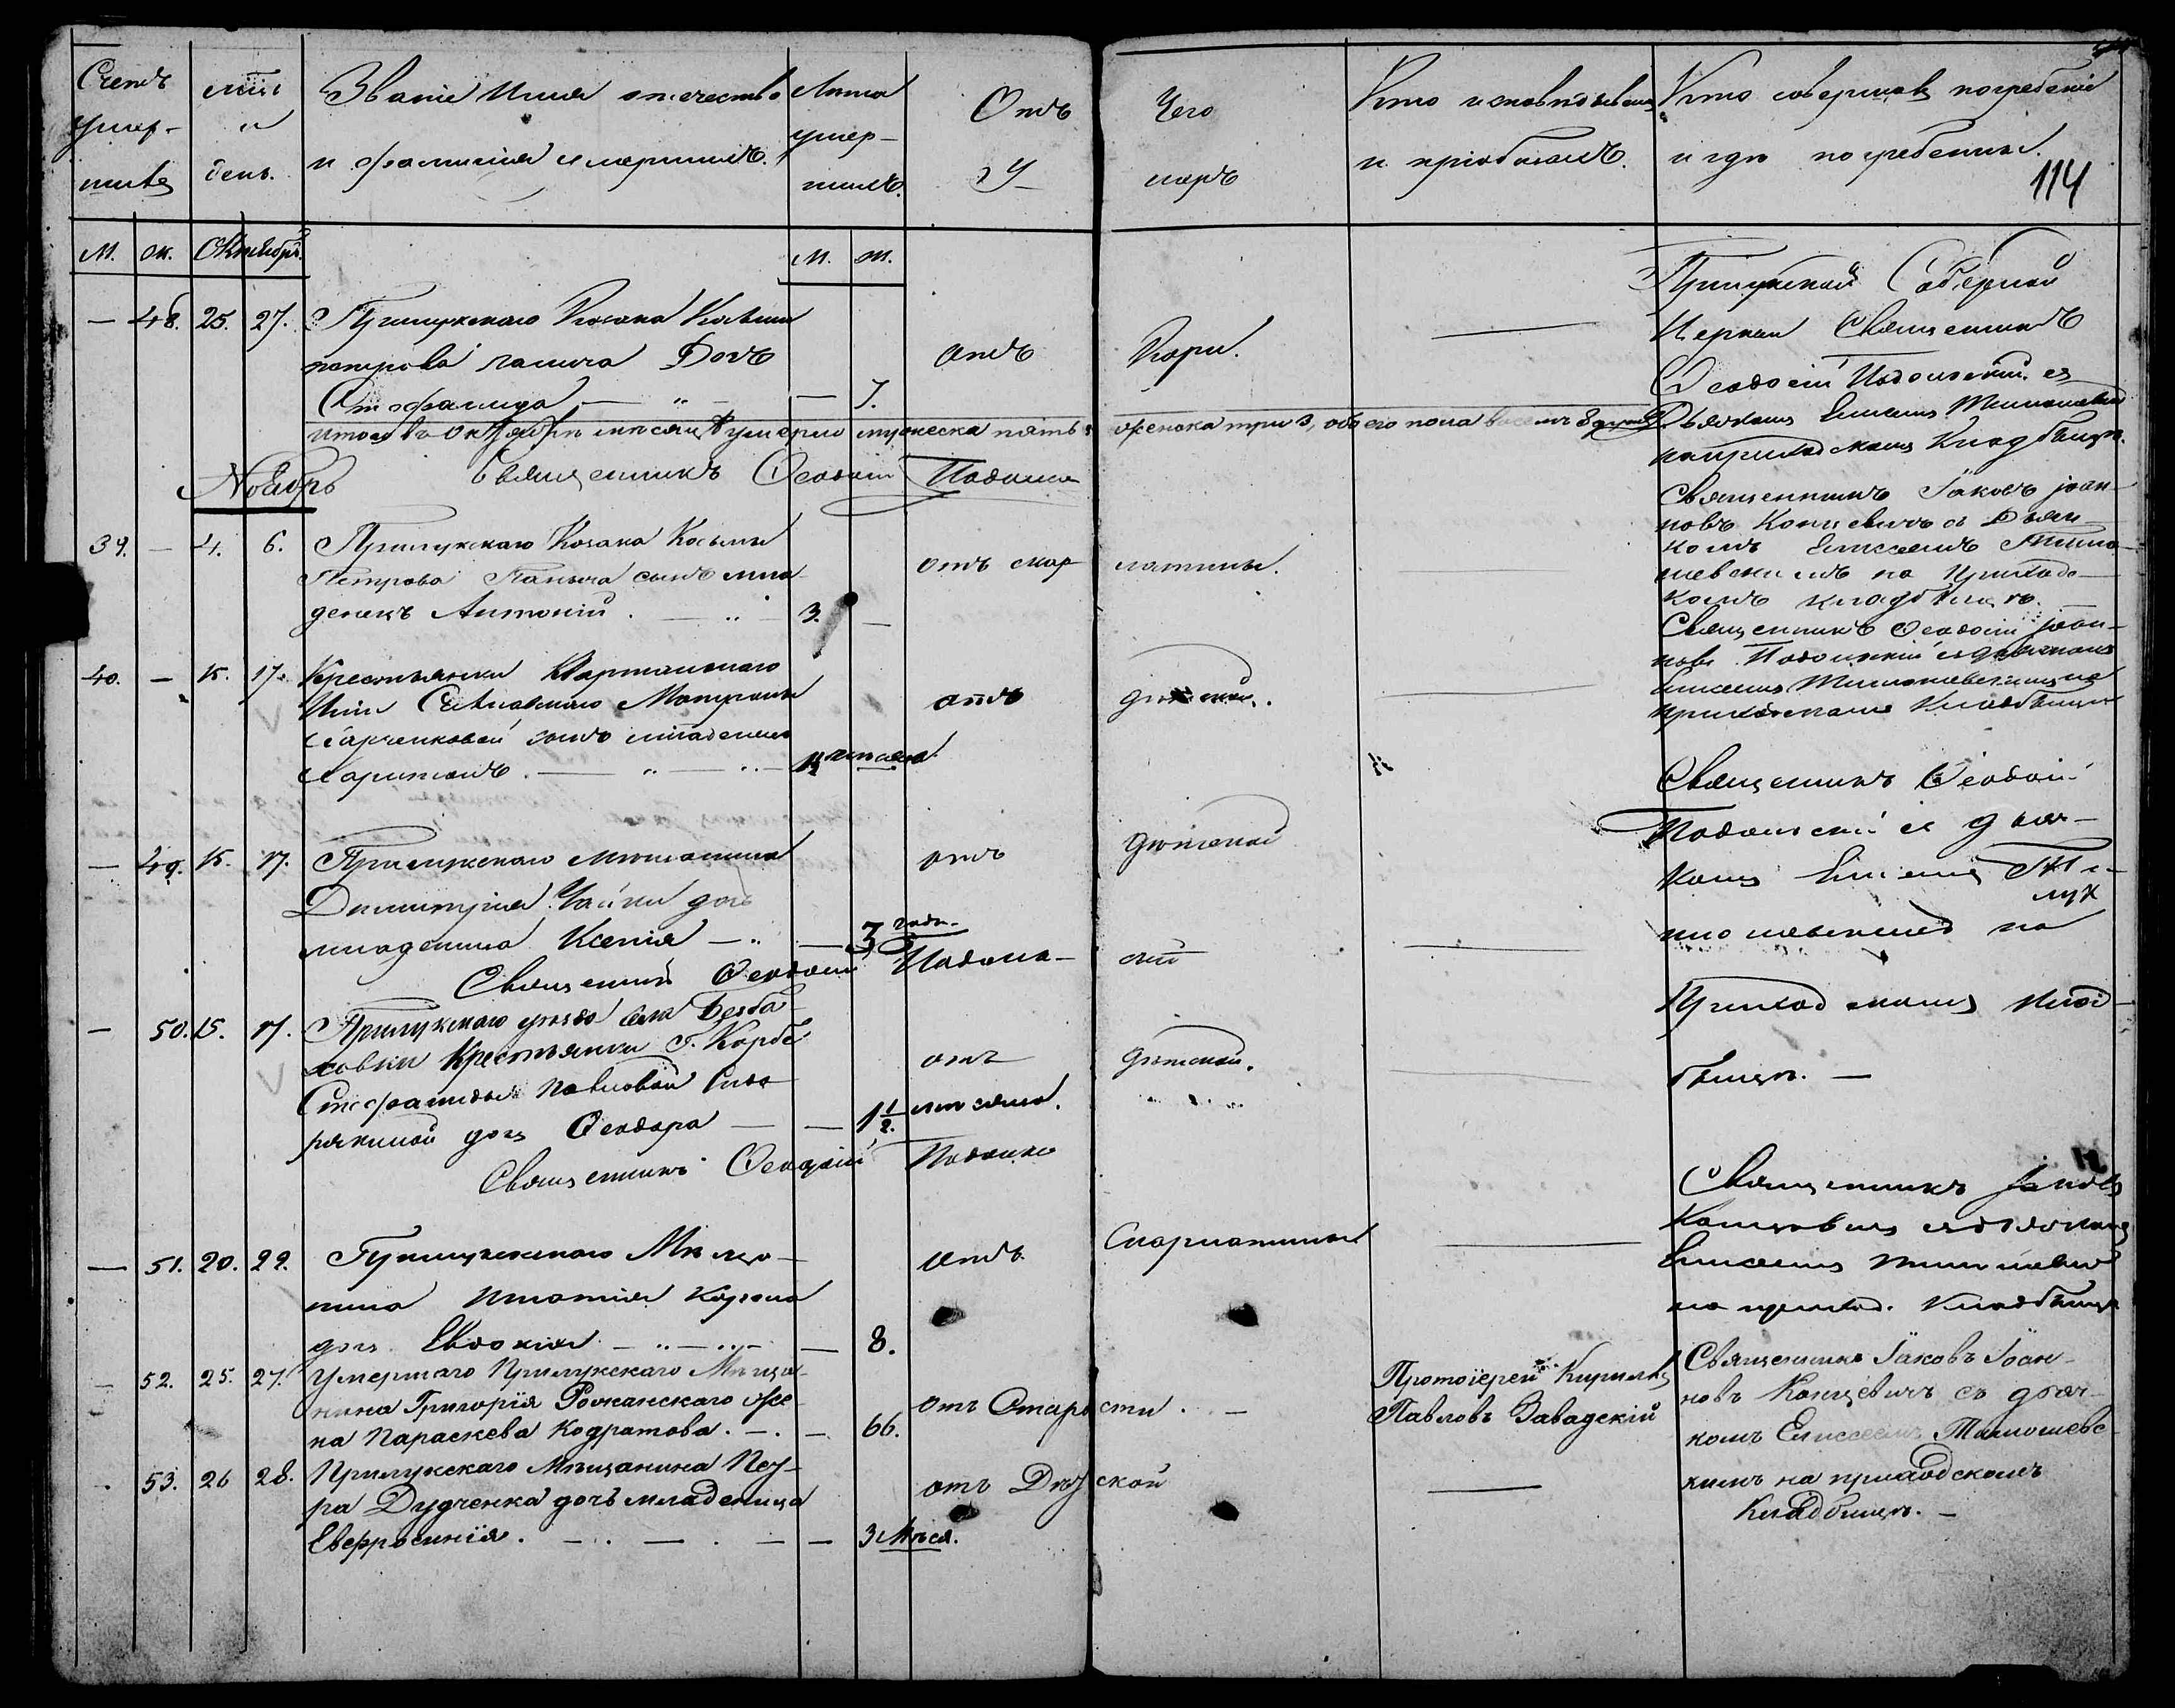 Счетъ умер-шихъ
мѣс. и день.
Званіе Имя отечество и фамилія умершихъ.
Лѣта умер-шихъ.
Отъ Чего
у меръ
Кто исповѣдывалъ и пріобщалъ.
Кто совершалъ погребеніе и гдѣ погребенны.
114
М. Ж. Октябрь. М. Ж.
— 48. 25. 27. Прилукскаго Козака Козьмы
Петрова Папыча Дочь
Стефанида — „ — — 7.
отъ Кори.
Прилукской Соборной
Церкви Священникъ
Ѳеодосій Подольскій съ
Дьячкомъ Елисеемъ Тимошевскимъ
на приходскомъ Кладбищѣ.
Итого въ Октябрѣ мѣсяцѣ умерло мужеска пять 5 женска три 3, обоего пола восемь 8 душъ
Священникъ Ѳеодосій Подольскій
Ноябрь
39. — 4. 6. Прилукскаго Козака Козьмы
Петрова Папыча сынъ мла-
денецъ Антоній . — „ — 3. —
отъ скар латины.
Священникъ Іаковъ Іоан-
новъ Концевичъ съ Дьяч-
комъ Елисеемъ Тимо-
шевскимъ на Приходс-
комъ кладбищѣ. —
40. — 15. 17. Крестьянки
Матроны
сынъ младенецъ
Харитонъ. — „ — „ — мѣсяца
отъ дѣтской.
Священникъ Ѳеодосій Іоан-
новъ Подольскій съ дьячкомъ
Елисеемъ Тимошевскимъ на
приходскомъ Кладбищѣ
— 49. 15. 17. Прилукскаго мѣщанина
Димитрія Чайки дочь
младеница Ксенія — „ — 3 года.
отъ дѣтской
Священникъ Ѳеодосій
Подольскій съ дьяч-
комъ Елисеемъ Ти-
мошевскимъ на
Приходскомъ Клад-
бищѣ. —
Священникъ Ѳеодосій Подольскій
— 50. 15. 17. Прилукскаго уѣзда села Безба-
ховки Крестьянки Г. Корбе
Стефаниды Павловой
дочь Ѳеодора — — 1½ мѣсяца.
отъ дѣтской.
Священникъ Ѳеодосій Подольскій
— 51. 20. 22. Прилукскаго Мѣща-
нина Игнатія
дочь Евдокія — „ — „ — — 8.
отъ Скарлатины
Священникъ Іаковъ
Концевичъ съ дьячкомъ
Елисеемъ Тимошевскимъ
на приход. Кладбищѣ
— 52. 25. 27. Умершаго Прилукскаго Мѣща-
нина Григорія Рожанскаго же-
на Параскева Кодратова. — . — 66.
отъ Старо сти . —
Протоіерей Кириллъ
Павловъ Завадскій
Священникъ Іаковъ Іоан-
новъ Концевичъ съ дьяч-
комъ Елисеемъ Тимошевс-
кимъ на приходскомъ
Кладбищѣ. —
53. 26 28. Прилукскаго Мѣщанина Пет-
ра Дудченка дочь младеница
Евфросинія. — . — . — — 3 Мѣся.
отъ Дѣт ской